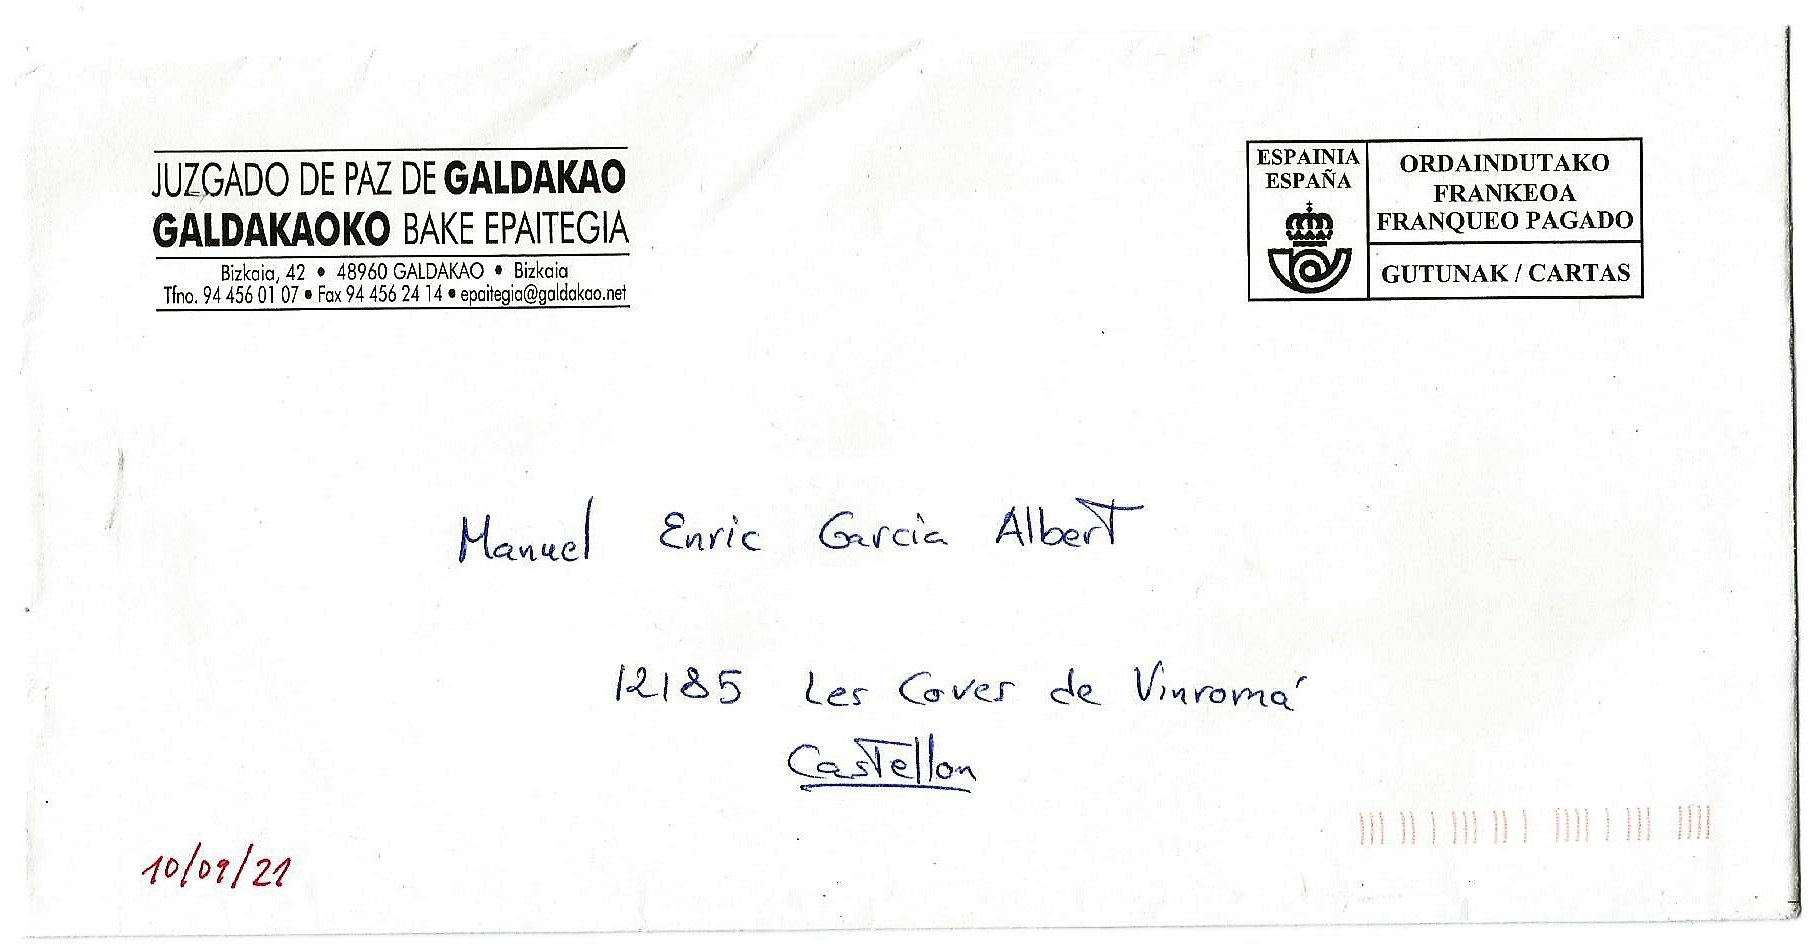 JUZGADO DE PAZ DE GALDAKAO
GALDAKAOKO BAKE EPAITEGIA
Bizkaia, 42 • 48960 GALDAKAO • Bizkaia
Tfno. 94 456 01 07 • Fax 94 456 24 14 • epaitegia@galdakao.net
ESPAINIA
ESPAÑA
ORDAINDUTAKO
FRANKEOA
FRANQUEO PAGADO
GUTUNAK / CARTAS
Manuel Enric Garcia Albert
12185 Les Coves de Vinromá
Castellon
10/09/21